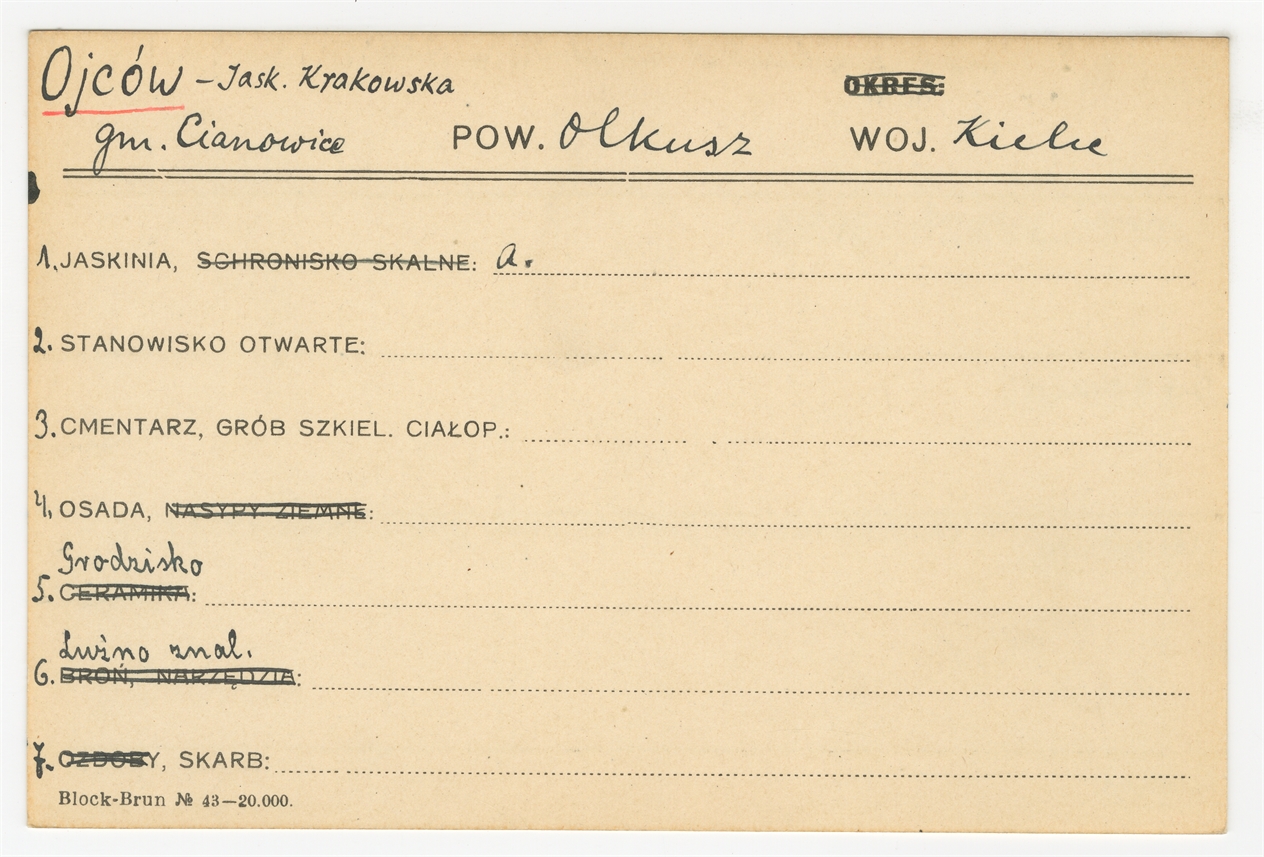 Ojców – Jask. Krakowska OKRES:
gm. Cianowice POW. Olkusz WOJ. Kielce
1. JASKINIA, SCHRONISKO SKALNE: a.
2. STANOWISKO OTWARTE:
3. CMENTARZ, GRÓB SZKIEL. CIAŁOP.:
4. OSADA, NASYPY ZIEMNE:
Grodzisko
5. CERAMIKA:
Luźno znal.
6. BROŃ, NARZĘDZIA:
7. OZDOBY, SKARB:
Block-Brun № 43—20.000.